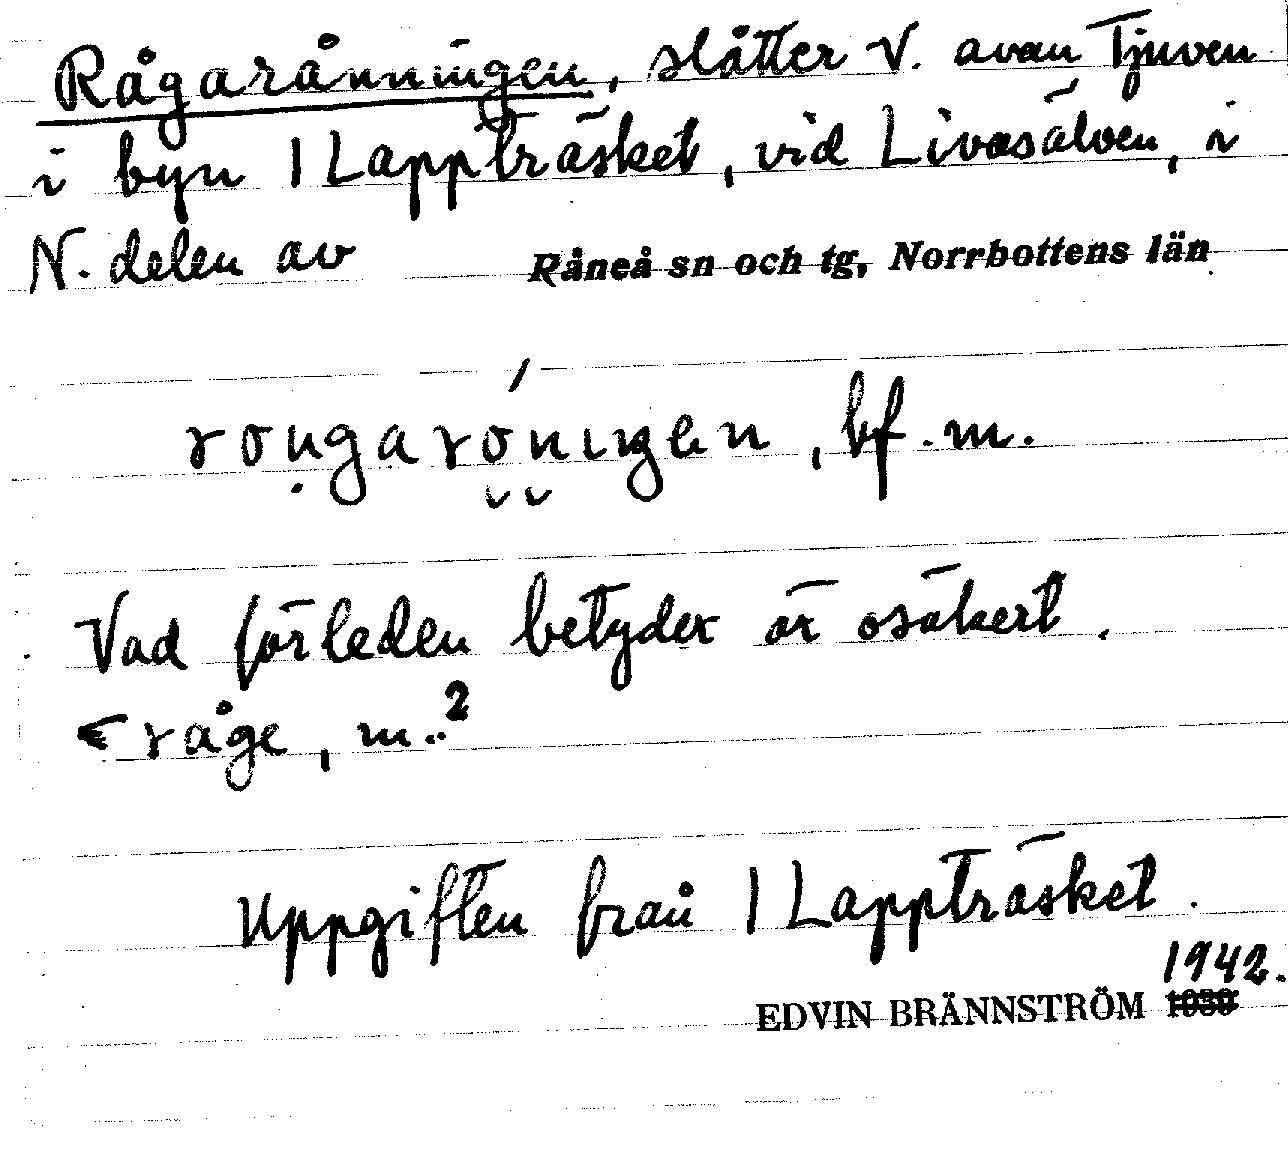 Rågarånningen, slåtter V. avan Tjuven
i byn 1 Lappträsket, vid Livasälven, i
N. delen av Råneå sn och tg, Norrbottens län
rou̩garóningen, bf. m.
Vad förleden betyder är osäkert.
råge, m..²
Uppgiften från 1 Lappträsket.
EDVIN BRÄNNSTRÖM 1942.